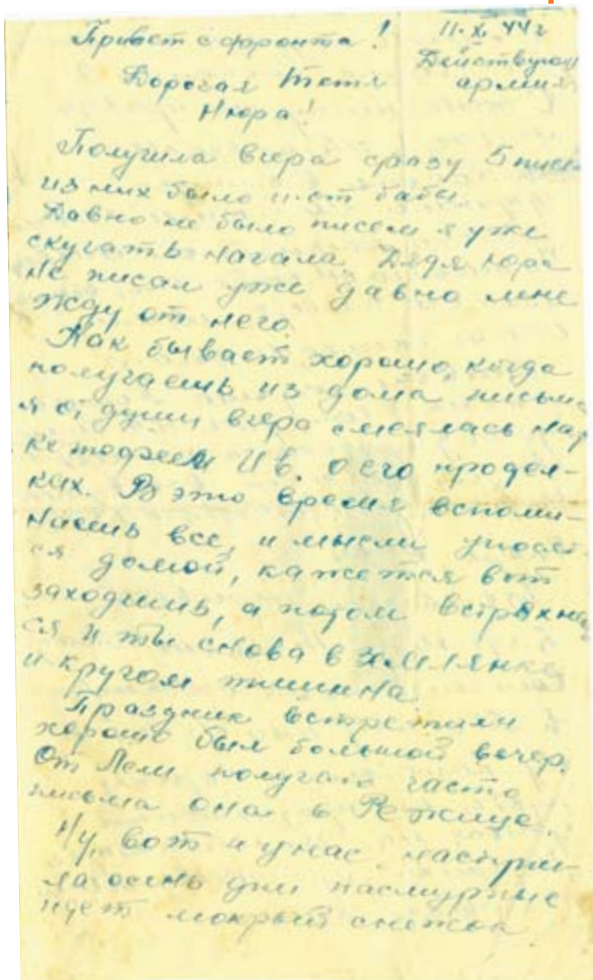 Привет с фронта! 11.XI.44г
Действующ
Дорогая Тетя армия
Нюра!
Получила вчера сразу 5 писем
из них было и от бабы.
Давно не было писем я уже
скучать начала. Дядя Юра
не писал уже давно мне
жду от него.
Как бывает хорошо, когда
получаешь из дома письма
я от души вчера смеялась над
котофеем Ив. о его продел-
ках. В это время вспоми-
наешь все, и мысли уносят-
ся домой, кажется вот
заходишь, а потом встряхнеш
ся и ты снова в землянке
и кругом тишина
Праздник встретили
хорошо был большой вечер.
От Лели получаю часто
письма она в Режице.
Ну, вот и у нас наступи-
ла осень дни пасмурные
идет мокрый снежок